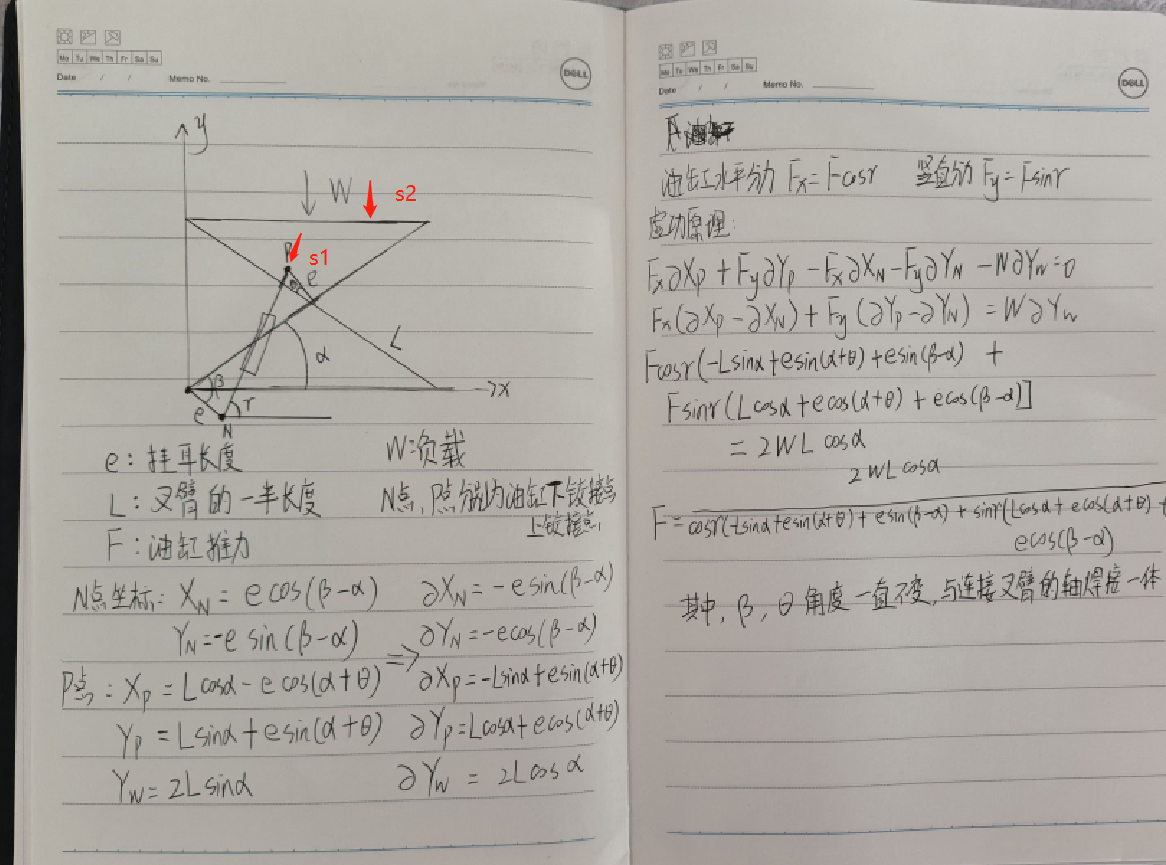 Mo Tu We Th Fr Sa Su
Date / / Memo No.
DELL
y
W
s2
P
s1
e
θ
L
α
β
x
e
r
N
e:挂耳长度 W:负载
L: 叉臂的一半长度 N点, P点分别为油缸下铰接点
上铰接点,
F: 油缸推力
N点坐标: X_N = e cos(β-α) ∂X_N = -e sin(β-α)
Y_N = -e sin(β-α) ∂Y_N = -e cos(β-α)
=>
P点: X_P = L cosα - e cos(α+θ) ∂X_P = -L sinα + e sin(α+θ)
Y_P = L sinα + e sin(α+θ) ∂Y_P = L cosα + e cos(α+θ)
Y_W = 2L sinα ∂Y_W = 2L cosα
Mo Tu We Th Fr Sa Su
Date / / Memo No.
DELL
油缸水平分力 Fx = F cos r 竖直分力 Fy = F sin r
虚功原理:
Fx∂X_P + Fy∂Y_P - Fx∂X_N - Fy∂Y_N - W∂Y_W = 0
Fx(∂X_P - ∂X_N) + Fy(∂Y_P - ∂Y_N) = W∂Y_W
F cos r(-L sinα + e sin(α+θ) + e sin(β-α) +
F sin r (L cosα + e cos(α+θ) + e cos(β-α)]
= 2WL cosα
2WL cosα
F = cos r(-L sinα + e sin(α+θ) + e sin(β-α) + sin r(L cosα + e cos(α+θ) +
e cos(β-α)
其中, β, θ 角度一直不变, 与连接叉臂的轴焊接一体